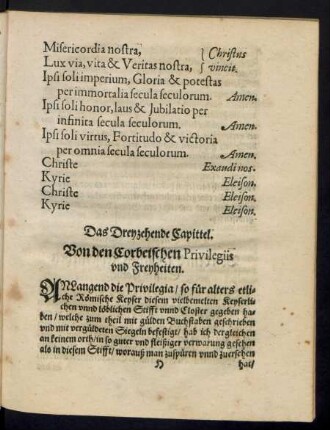 Misericordia nostra, } Christus
Lux via, vita & Veritas nostra, } vincit.
Ipsi soli imperium, Gloria & potestas
per immortalia secula seculorum. Amen.
Ipsi soli honor, laus & Jubilatio per
infinita secula seculorum. Amen.
Ipsi soli virtus, Fortitudo & victoria
per omnia secula seculorum. Amen.
Christe Exaudi nos.
Kyrie Eleison.
Christe Eleison.
Kyrie Eleison.
Das Dreyzehende Capittel.
Von den Corbeischen Privilegiis
vnd Freyheiten.
ANLangend die Privilegia / so für alters etli-
che Römische Keyser diesem vielbemelten Keyserli-
chen vnnd löblichen Stifft vnnd Closter gegeben ha-
ben / welche zum theil mit gülden Buchstaben geschrieben
vnd mit vergüldeten Siegeln befestigt / hab ich dergleichen
an keinem orth / in so guter vnd fleißiger verwarung gesehen
als in diesem Stifft / worauß man zuspüren vnnd zuersehen
H hat /